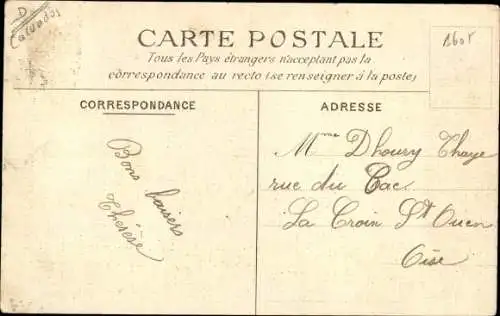 D
Calvados
CARTE POSTALE
Tous les Pays étrangers n'acceptant pas la
correspondance au recto (se renseigner à la poste)
CORRESPONDANCE
ADRESSE
Bons baisers
Thérèse
Mme Dhoury Thaye
rue du Bac
La Croix St Ouen
Oise